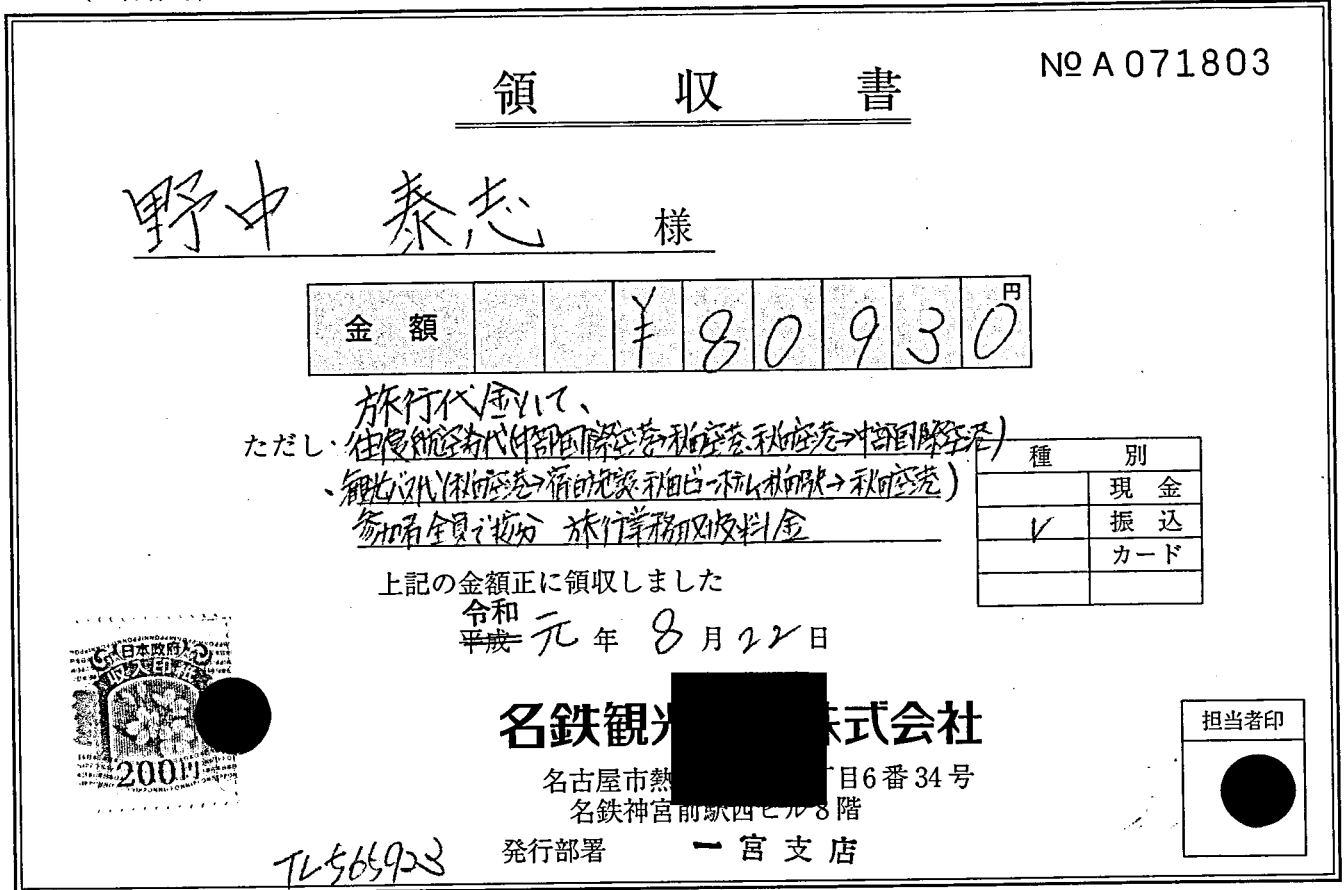 № A 071803
領 収 書
野中 泰志 様
金 額 ¥80930円
旅行代金として、
ただし・往復航空券代(中部国際空港→秋田空港、秋田空港→中部国際空港)
・観光バス代(秋田空港→宿泊施設、秋田ビューホテル、秋田駅→秋田空港)
参加者全員で按分 旅行業務取扱料金
種 別
現 金
∨ 振 込
カード
上記の金額正に領収しました
令和
平成 元 年 8 月 22 日
日本政府
収入印紙
200円
名鉄観光 株式会社
名古屋市熱 丁目6番34号
名鉄神宮前駅西ビル8階
発行部署 一宮支店
担当者印
TL565923